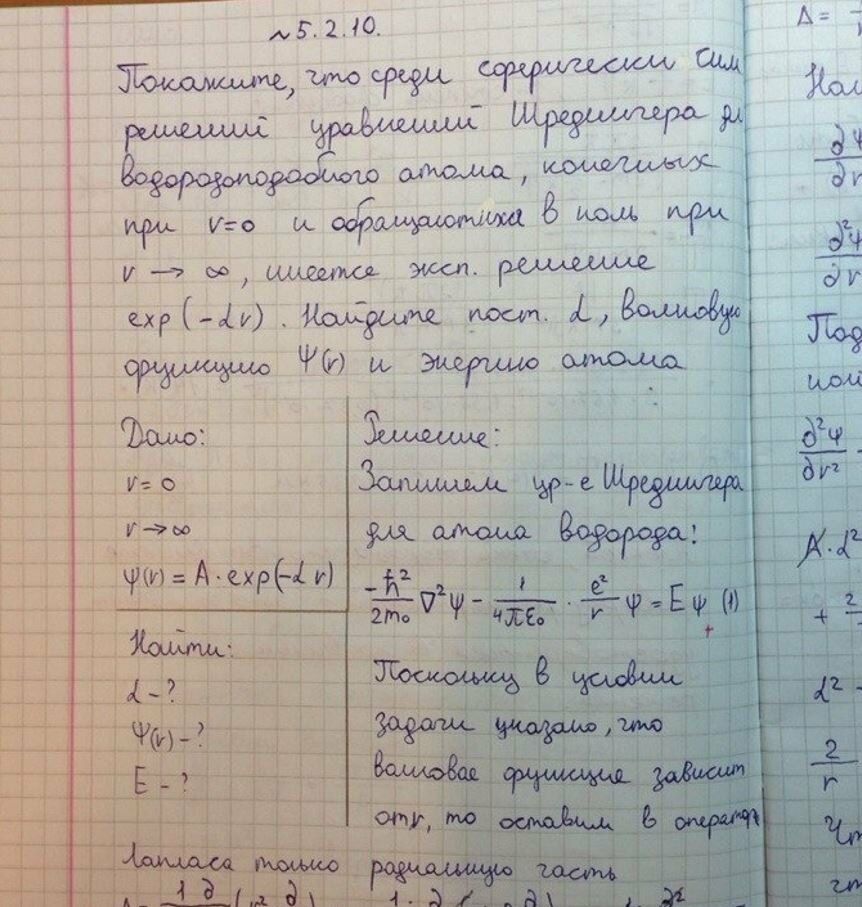 ~5.2.10.
Покажите, что среди сферически сим
решений уравнений Шредингера дл
водородоподобного атома, конечных
при r=0 и обращающихся в ноль при
r → ∞, имеется эксп. решение
exp(-αr). Найдите пост. α, волновую
функцию Ψ(r) и энергию атома
Дано:
r=0
r→∞
ψ(r) = A·exp(-αr)
Найти:
α-?
Ψ(r)-?
E-?
Решение:
Запишем ур-е Шредингера
для атома водорода:
-ħ²/2m₀ ∇²ψ - 1/4πε₀ · e²/r ψ = Eψ (1)
Поскольку в условии
задачи указано, что
волновая функция зависит
от r, то оставим в операторе
Лапласа только радиальную часть
Δ=
Най
∂Ψ
∂r
∂²Ψ
∂r
Под
∂²Ψ
∂r²
A·α²
+ 2
α² -
2
r